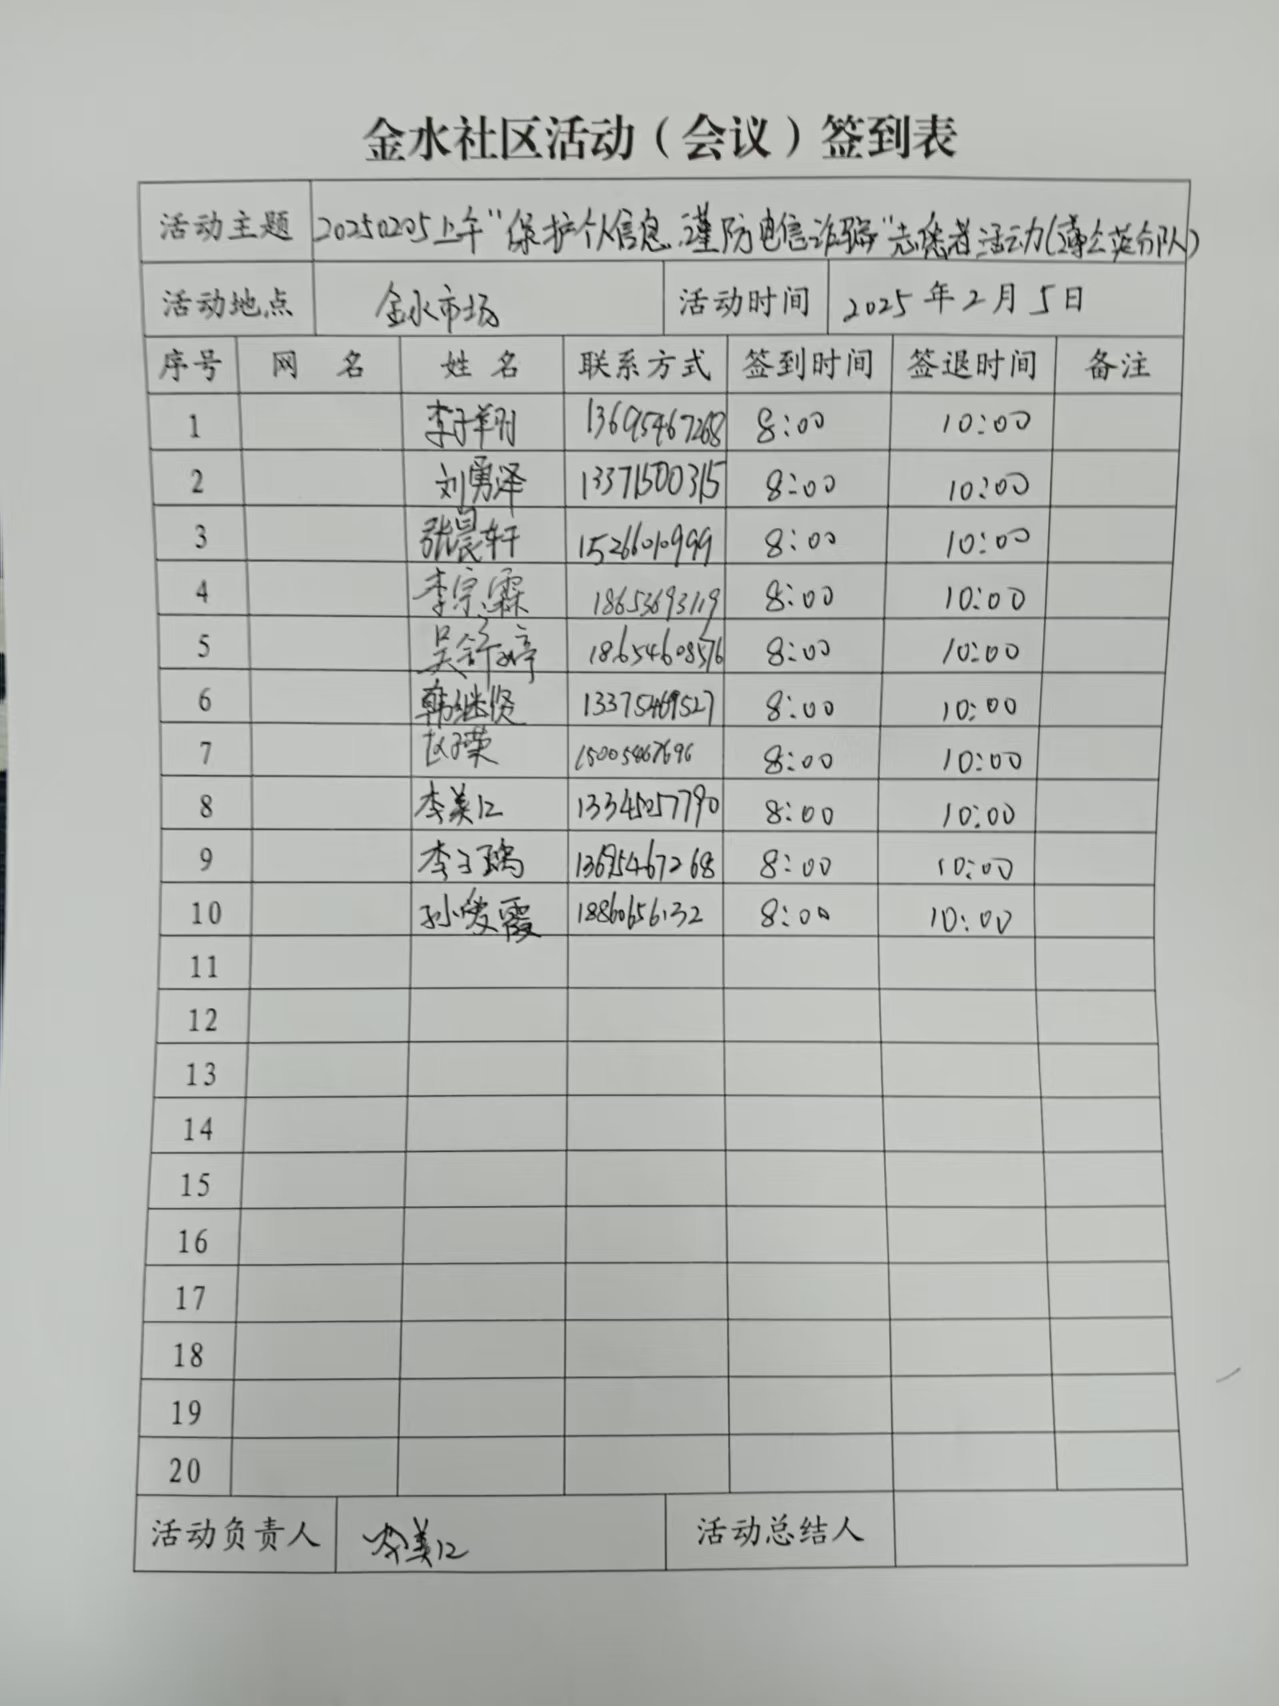 金水社区活动（会议）签到表
活动主题 20250205上午“保护个人信息，谨防电信诈骗”志愿者活动（蒲公英分队）
活动地点 金水市场 活动时间 2025年2月5日
序号 网 名 姓 名 联系方式 签到时间 签退时间 备注
1 李子翔 13695467268 8:00 10:00
2 刘勇泽 13371500315 8:00 10:00
3 张晨轩 15266010999 8:00 10:00
4 李宗霖 18653693119 8:00 10:00
5 吴舒婷 18654608576 8:00 10:00
6 韩继贤 13375469527 8:00 10:00
7 15005467696 8:00 10:00
8 李美江 13345257790 8:00 10:00
9 李子瑀 13695467268 8:00 10:00
10 孙爱霞 18860656132 8:00 10:00
11
12
13
14
15
16
17
18
19
20
活动负责人 李美江 活动总结人